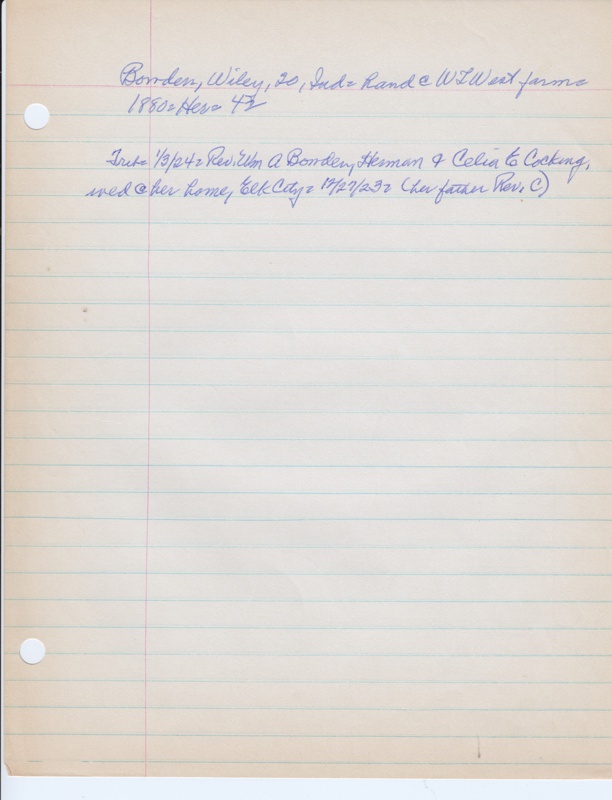 Bowden, Wiley, 20, Ind= hand @ WT West farm=
1880= Her= 42
Trib= 1/3/24= Rev. Wm A Bowden, Herman & Celia E Cocking,
wed @ her home, Elk City= 12/27/23= (her father Rev. C)